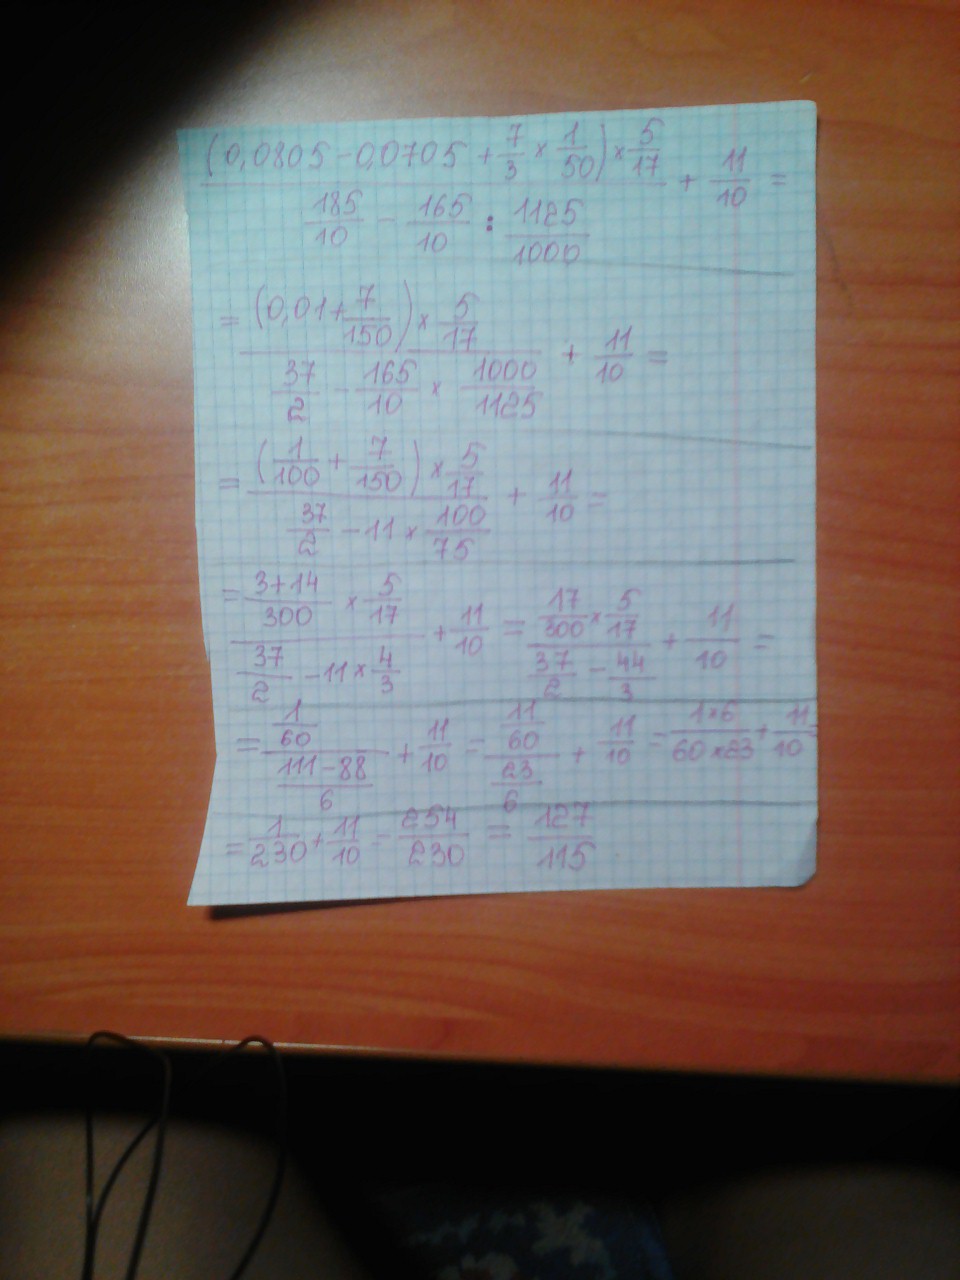 (0,0805 - 0,0705 + 7/3 × 1/50) × 5/17 / (185/10 - 165/10 : 1125/1000) + 11/10 =
= (0,01 + 7/150) × 5/17 / (37/2 - 165/10 × 1000/1125) + 11/10 =
= (1/100 + 7/150) × 5/17 / (37/2 - 11 × 100/75) + 11/10 =
= (3+14)/300 × 5/17 / (37/2 - 11 × 4/3) + 11/10 = 17/300 × 5/17 / (37/2 - 44/3) + 11/10 =
= 1/60 / ((111-88)/6) + 11/10 = 11/60 / (23/6) + 11/10 = 1×6 / 60×23 + 11/10 =
= 1/230 + 11/10 = 254/230 = 127/115